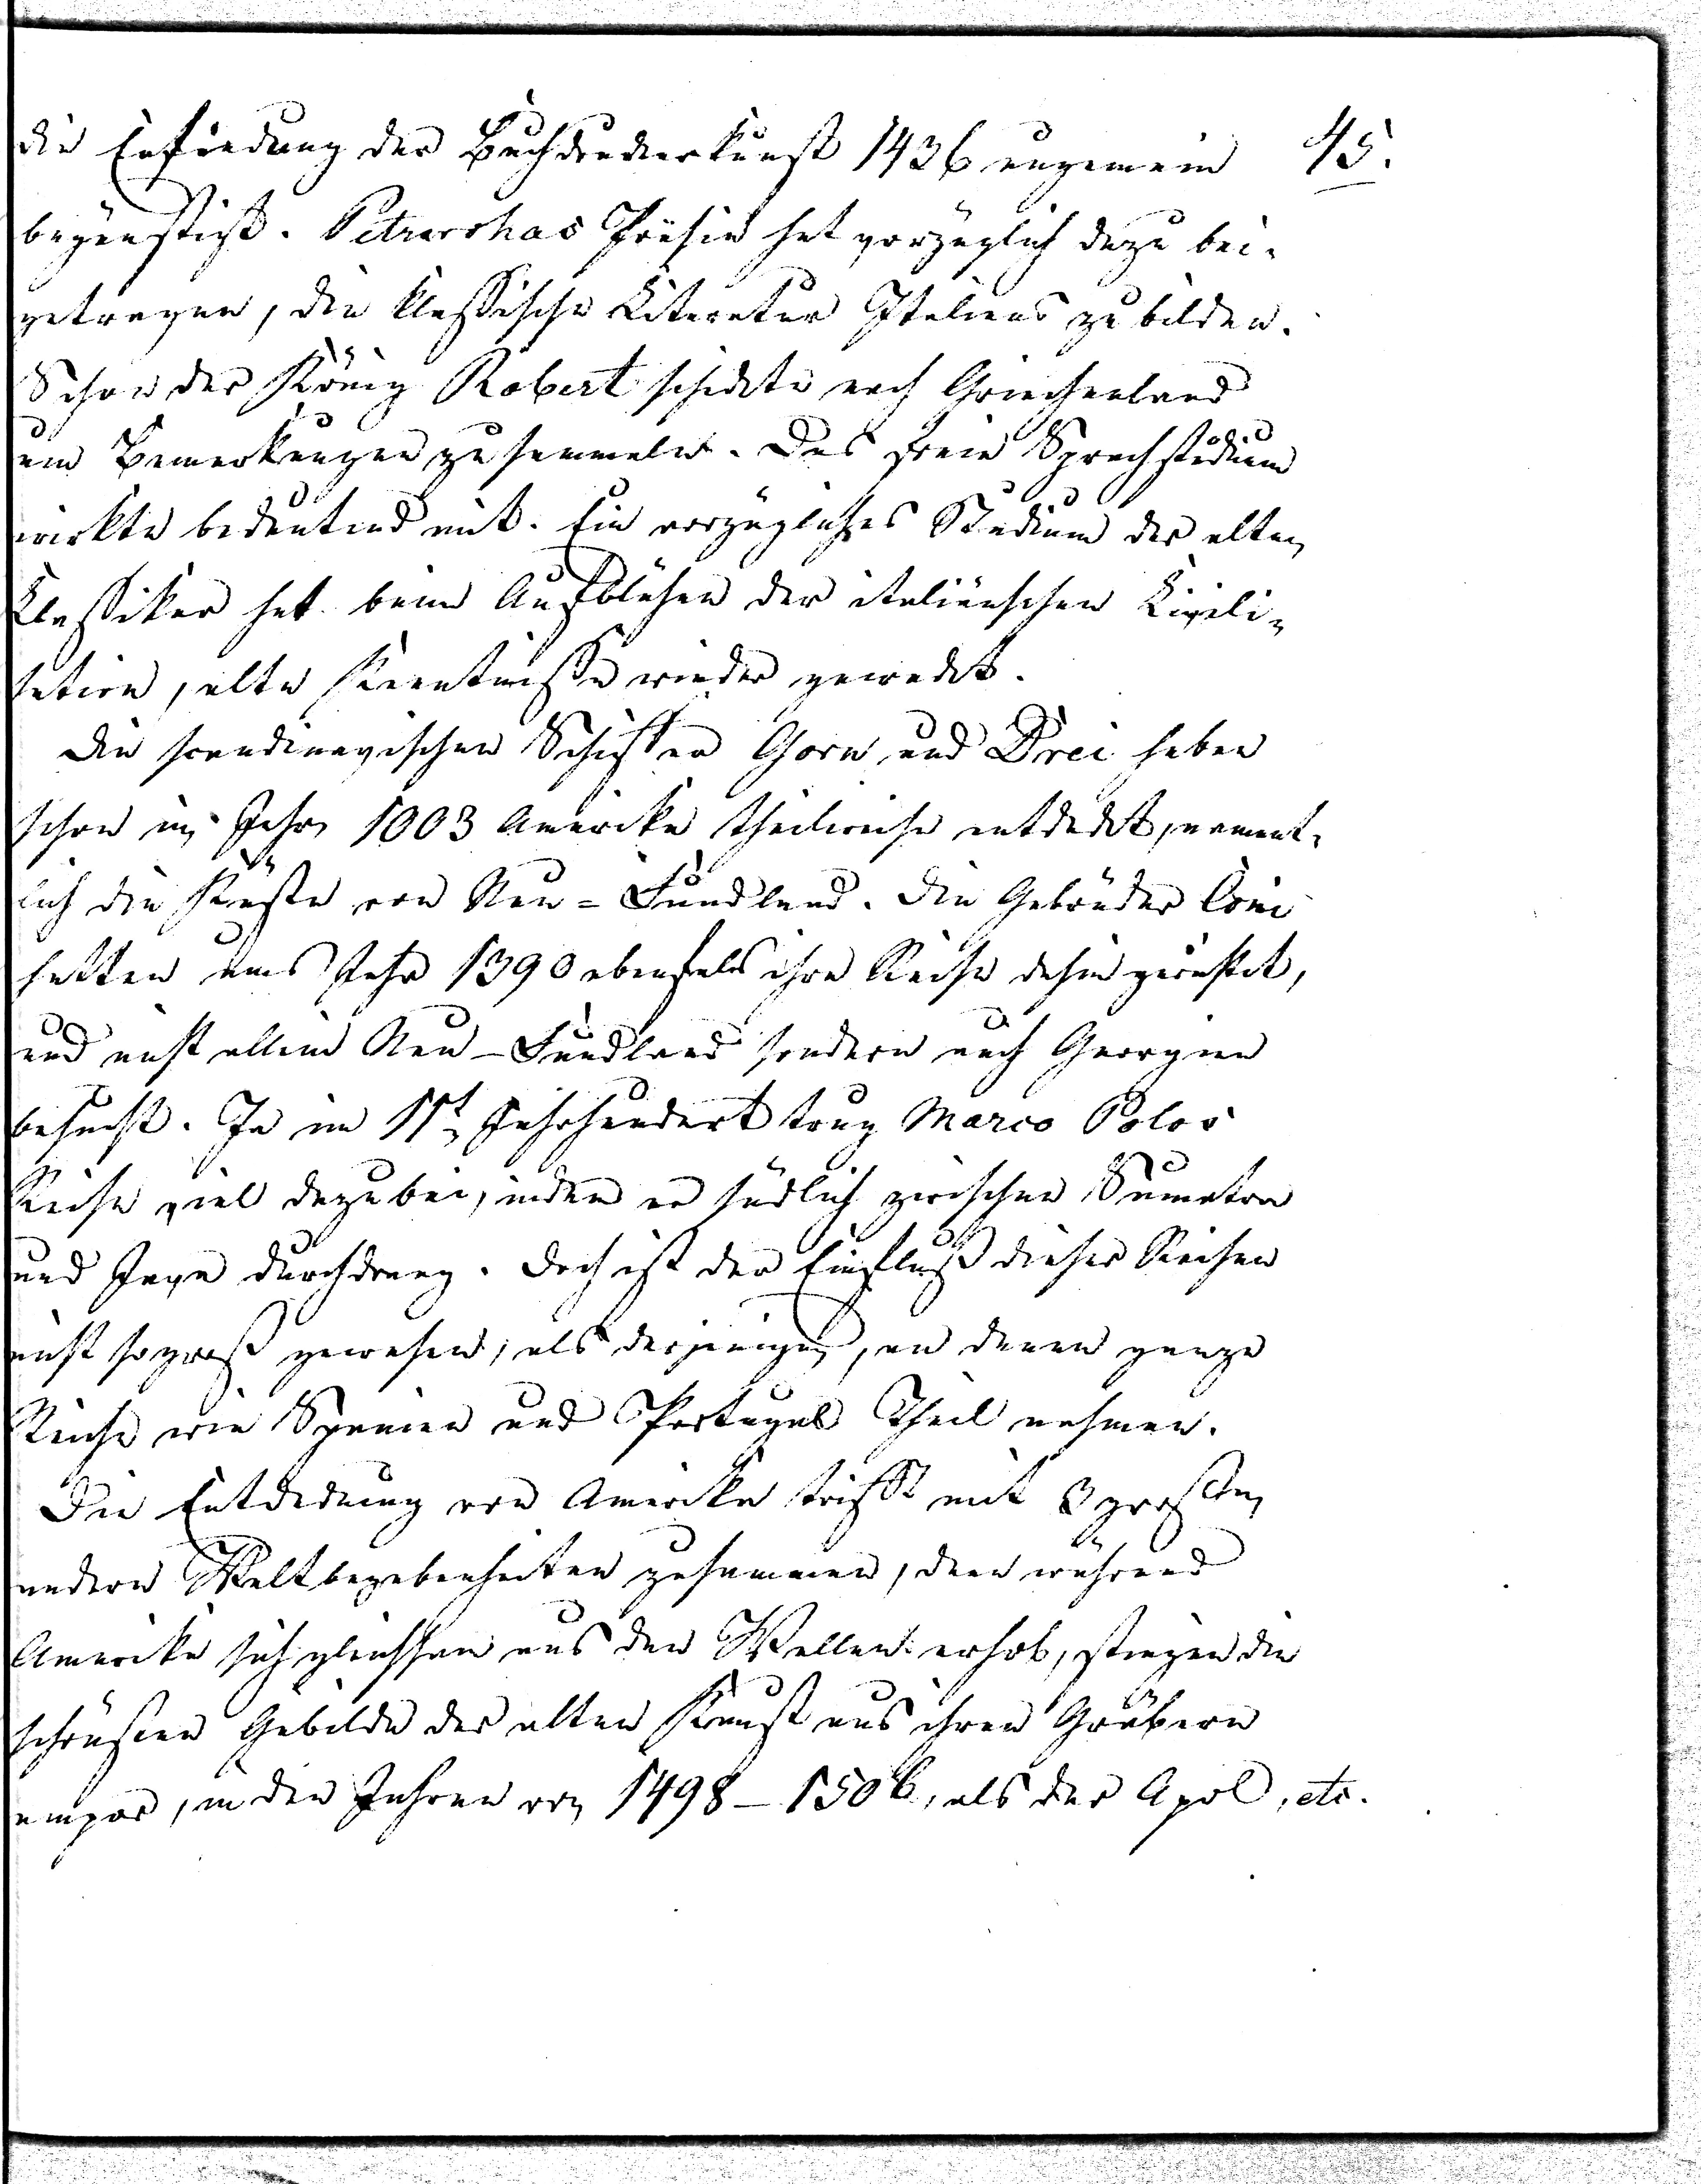 die Erfindung der Buchdruckerkunst 1436 ungemein 45.
begünstigt. Petrarchas Poësie hat vorzüglich dazu bei-
getragen, die klassische Literatur Italiens zu bilden.
Schon der König Robert schickte nach Griechenland
um Bemerkungen zu sammeln. Das freie Sprachstudium
wirkte bedeutend mit. Ein vorzügliches Studium der alten
Klassiker hat beim Aufblühen der italiänschen Civili-
sation, alte Kenntnisse wieder geweckt.
Die scandinavischen Schiffer Gorn und Drei haben
schon im Jahr 1003 Amerika theilweise entdeckt, nament-
lich die Küste von Neu-Fundland. Die Gebrüder
hatten ums Jahr 1390 ebenfals ihre Reise dahin gerichtet,
und nicht allein Neu-Fundland sondern auch Georgien
besucht. Ja im Jahrhundert trug Marco Polos
Reise viel dazu bei, indem er südlich zwischen Sumatra
und Java durchdrang. Doch ist der Einfluß dieser Reisen
nicht so groß gewesen, als derjenigen, an denen ganze
Reiche wie Spanien und Portugal Theil nahmen.
Die Entdeckung von Amerika trifft mit 3 großen
andern Weltbegebenheiten zusammen, denn während
Amerika sich gleichsam aus den Wellen erhob, stiegen die
schönsten Gebilde der alten Kunst aus ihren Gräbern
empor, in den Jahren von 1498 – 1506, als der Apol, etc.